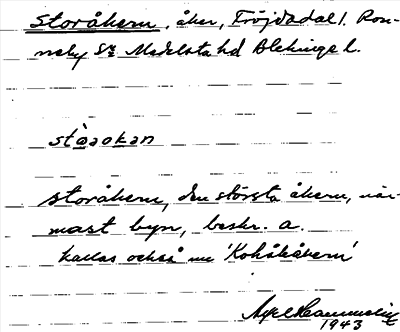 Storåkern, åker, Fröjdadal 1. Ron-
neby Sn Medelsta hd Blekinge l.
stòaokan
storåkern, den största åkern, när-
mast byn, beskr. a.
kallas också nu 'Kohåkåkern'
Axel
1943